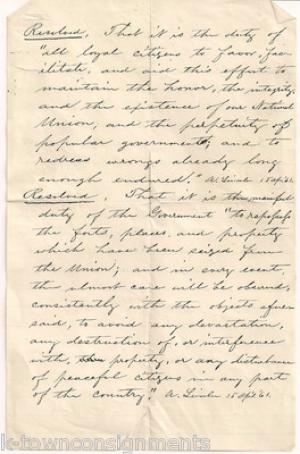 Resolved, That it is the duty of
"all loyal citizens to favor, fac-
ilitate, and aid this effort to
maintain the honor, the integrity,
and the existence of our National
Union, and the perpetuity of
popular government; and to
redress wrongs already long
enough endured." A. Lincoln 15 Apl. 61.
Resolved, That it is the manifest
duty of the Government "to repossess
the forts, places, and property
which have been seized from
the Union; and in every event,
the utmost care will be observed,
consistently with the objects afore-
said, to avoid any devastation,
any destruction of, or interference
with, property, or any disturbance
of peaceful citizens in any part
of the country." A. Lincoln 15 Apl. 61.
k-townconsignments